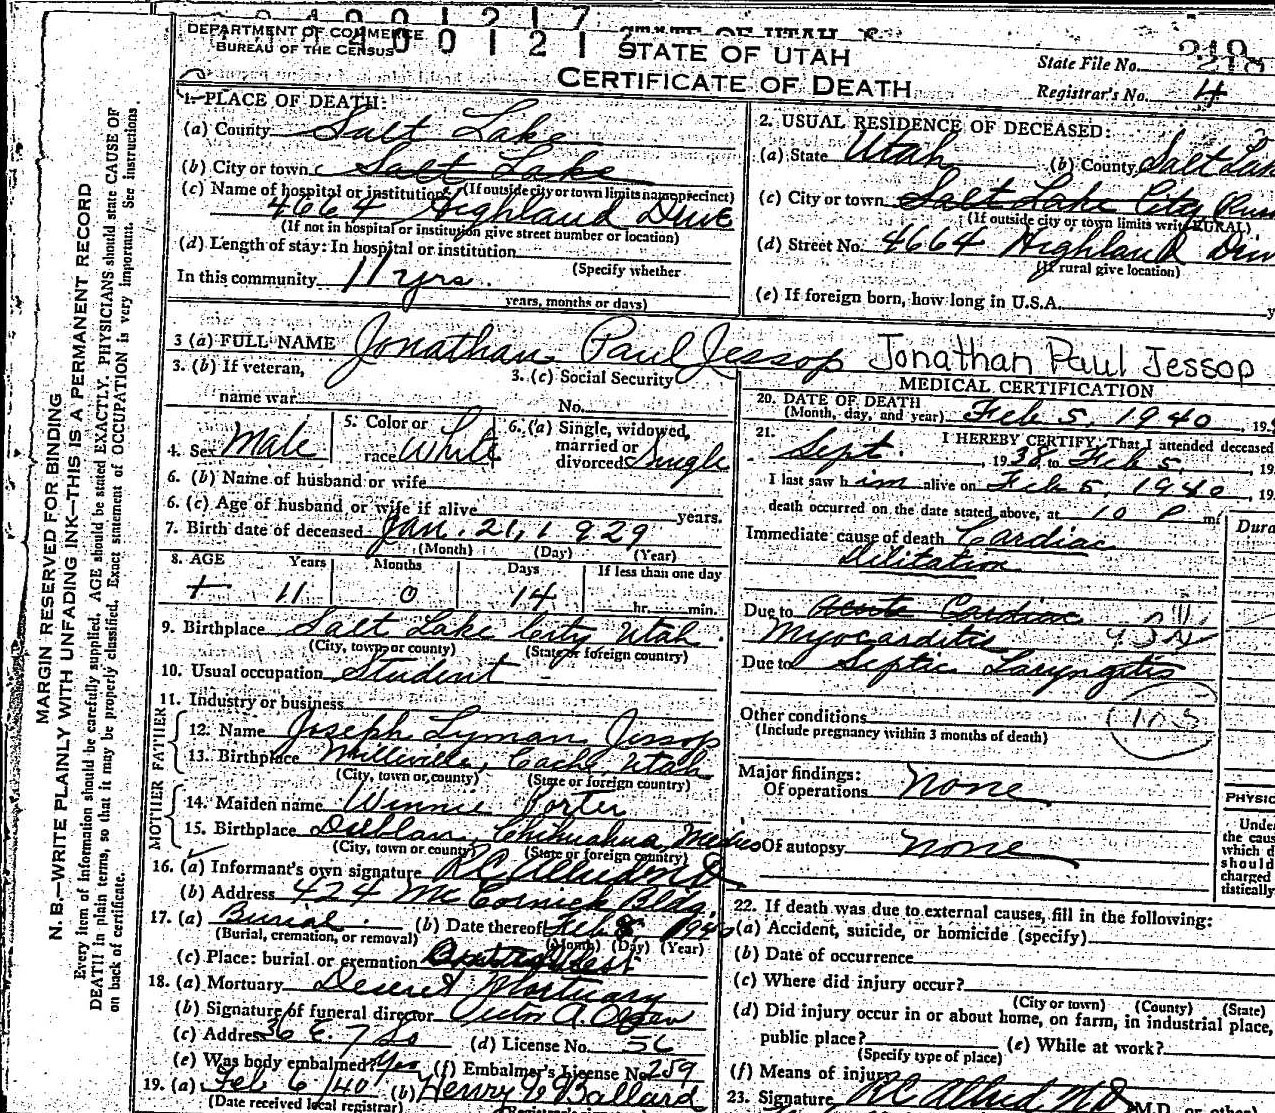 DEPARTMENT OF COMMERCE
BUREAU OF THE CENSUS
STATE OF UTAH
CERTIFICATE OF DEATH
State File No. 218
Registrar's No. 4
1. PLACE OF DEATH:
(a) County Salt Lake
(b) City or town Salt Lake
(If outside city or town limits name precinct)
(c) Name of hospital or institution:
4664 Highland Drive
(If not in hospital or institution give street number or location)
(d) Length of stay: In hospital or institution
(Specify whether
In this community 11 yrs.
years, months or days)
2. USUAL RESIDENCE OF DECEASED:
(a) State Utah (b) County Salt Lak
(c) City or town Salt Lake City
(If outside city or town limits write RURAL)
(d) Street No. 4664 Highland Driv
(If rural give location)
(e) If foreign born, how long in U.S.A. y
3 (a) FULL NAME Jonathan Paul Jessop Jonathan Paul Jessop
3. (b) If veteran,
name war
3. (c) Social Security
No.
4. Sex Male
5. Color or
race White
6. (a) Single, widowed,
married or
divorced Single
6. (b) Name of husband or wife
6. (c) Age of husband or wife if alive years.
7. Birth date of deceased Jan. 21, 1929
(Month) (Day) (Year)
8. AGE Years Months Days If less than one day
11 0 14 hr. min.
9. Birthplace Salt Lake City Utah.
(City, town or county) (State or foreign country)
10. Usual occupation Student
11. Industry or business
FATHER
12. Name Joseph Lyman Jessop
13. Birthplace Millville, Cache Utah
(City, town or county) (State or foreign country)
MOTHER
14. Maiden name Winnie Porter
15. Birthplace Dublan, Chihuahua, Mexico
(City, town or county) (State or foreign country)
16. (a) Informant's own signature RC Allred MD
(b) Address 424 McCornick Bldg.
17. (a) Burial. (b) Date thereof Feb 8 1940
(Burial, cremation, or removal) (Month) (Day) (Year)
(c) Place: burial or cremation
18. (a) Mortuary Deseret Mortuary
(b) Signature of funeral director Victor A. Olsen
(c) Address 36 E. 7 So (d) License No. 56
(e) Was body embalmed? Yes (f) Embalmer's License No. 259
19. (a) Feb 6/40 (b) Henry Ballard
(Date received local registrar)
MEDICAL CERTIFICATION
20. DATE OF DEATH
(Month, day, and year) Feb 5, 1940, 19
21. I HEREBY CERTIFY, That I attended deceased
Sept., 1938, to Feb 5, 19
I last saw him alive on Feb 5, 1940, 19
death occurred on the date stated above, at 10 P m
Immediate cause of death Cardiac
Dilitation
Dura
Due to Acute Cardiac
Myocarditis
Due to Septic Laryngitis
Other conditions
(Include pregnancy within 3 months of death)
Major findings:
Of operations None
Of autopsy None
PHYSIC
Unde
the caus
which d
should
charged
tistically
22. If death was due to external causes, fill in the following:
(a) Accident, suicide, or homicide (specify)
(b) Date of occurrence
(c) Where did injury occur?
(City or town) (County) (State)
(d) Did injury occur in or about home, on farm, in industrial place,
public place? (e) While at work?
(Specify type of place)
(f) Means of injury
23. Signature RC Allred MD
M.D. or other)
MARGIN RESERVED FOR BINDING
N. B.—WRITE PLAINLY WITH UNFADING INK—THIS IS A PERMANENT RECORD
Every item of information should be carefully supplied. AGE should be stated EXACTLY. PHYSICIANS should state CAUSE OF
DEATH in plain terms, so that it may be properly classified. Exact statement of OCCUPATION is very important. See instructions
on back of certificate.